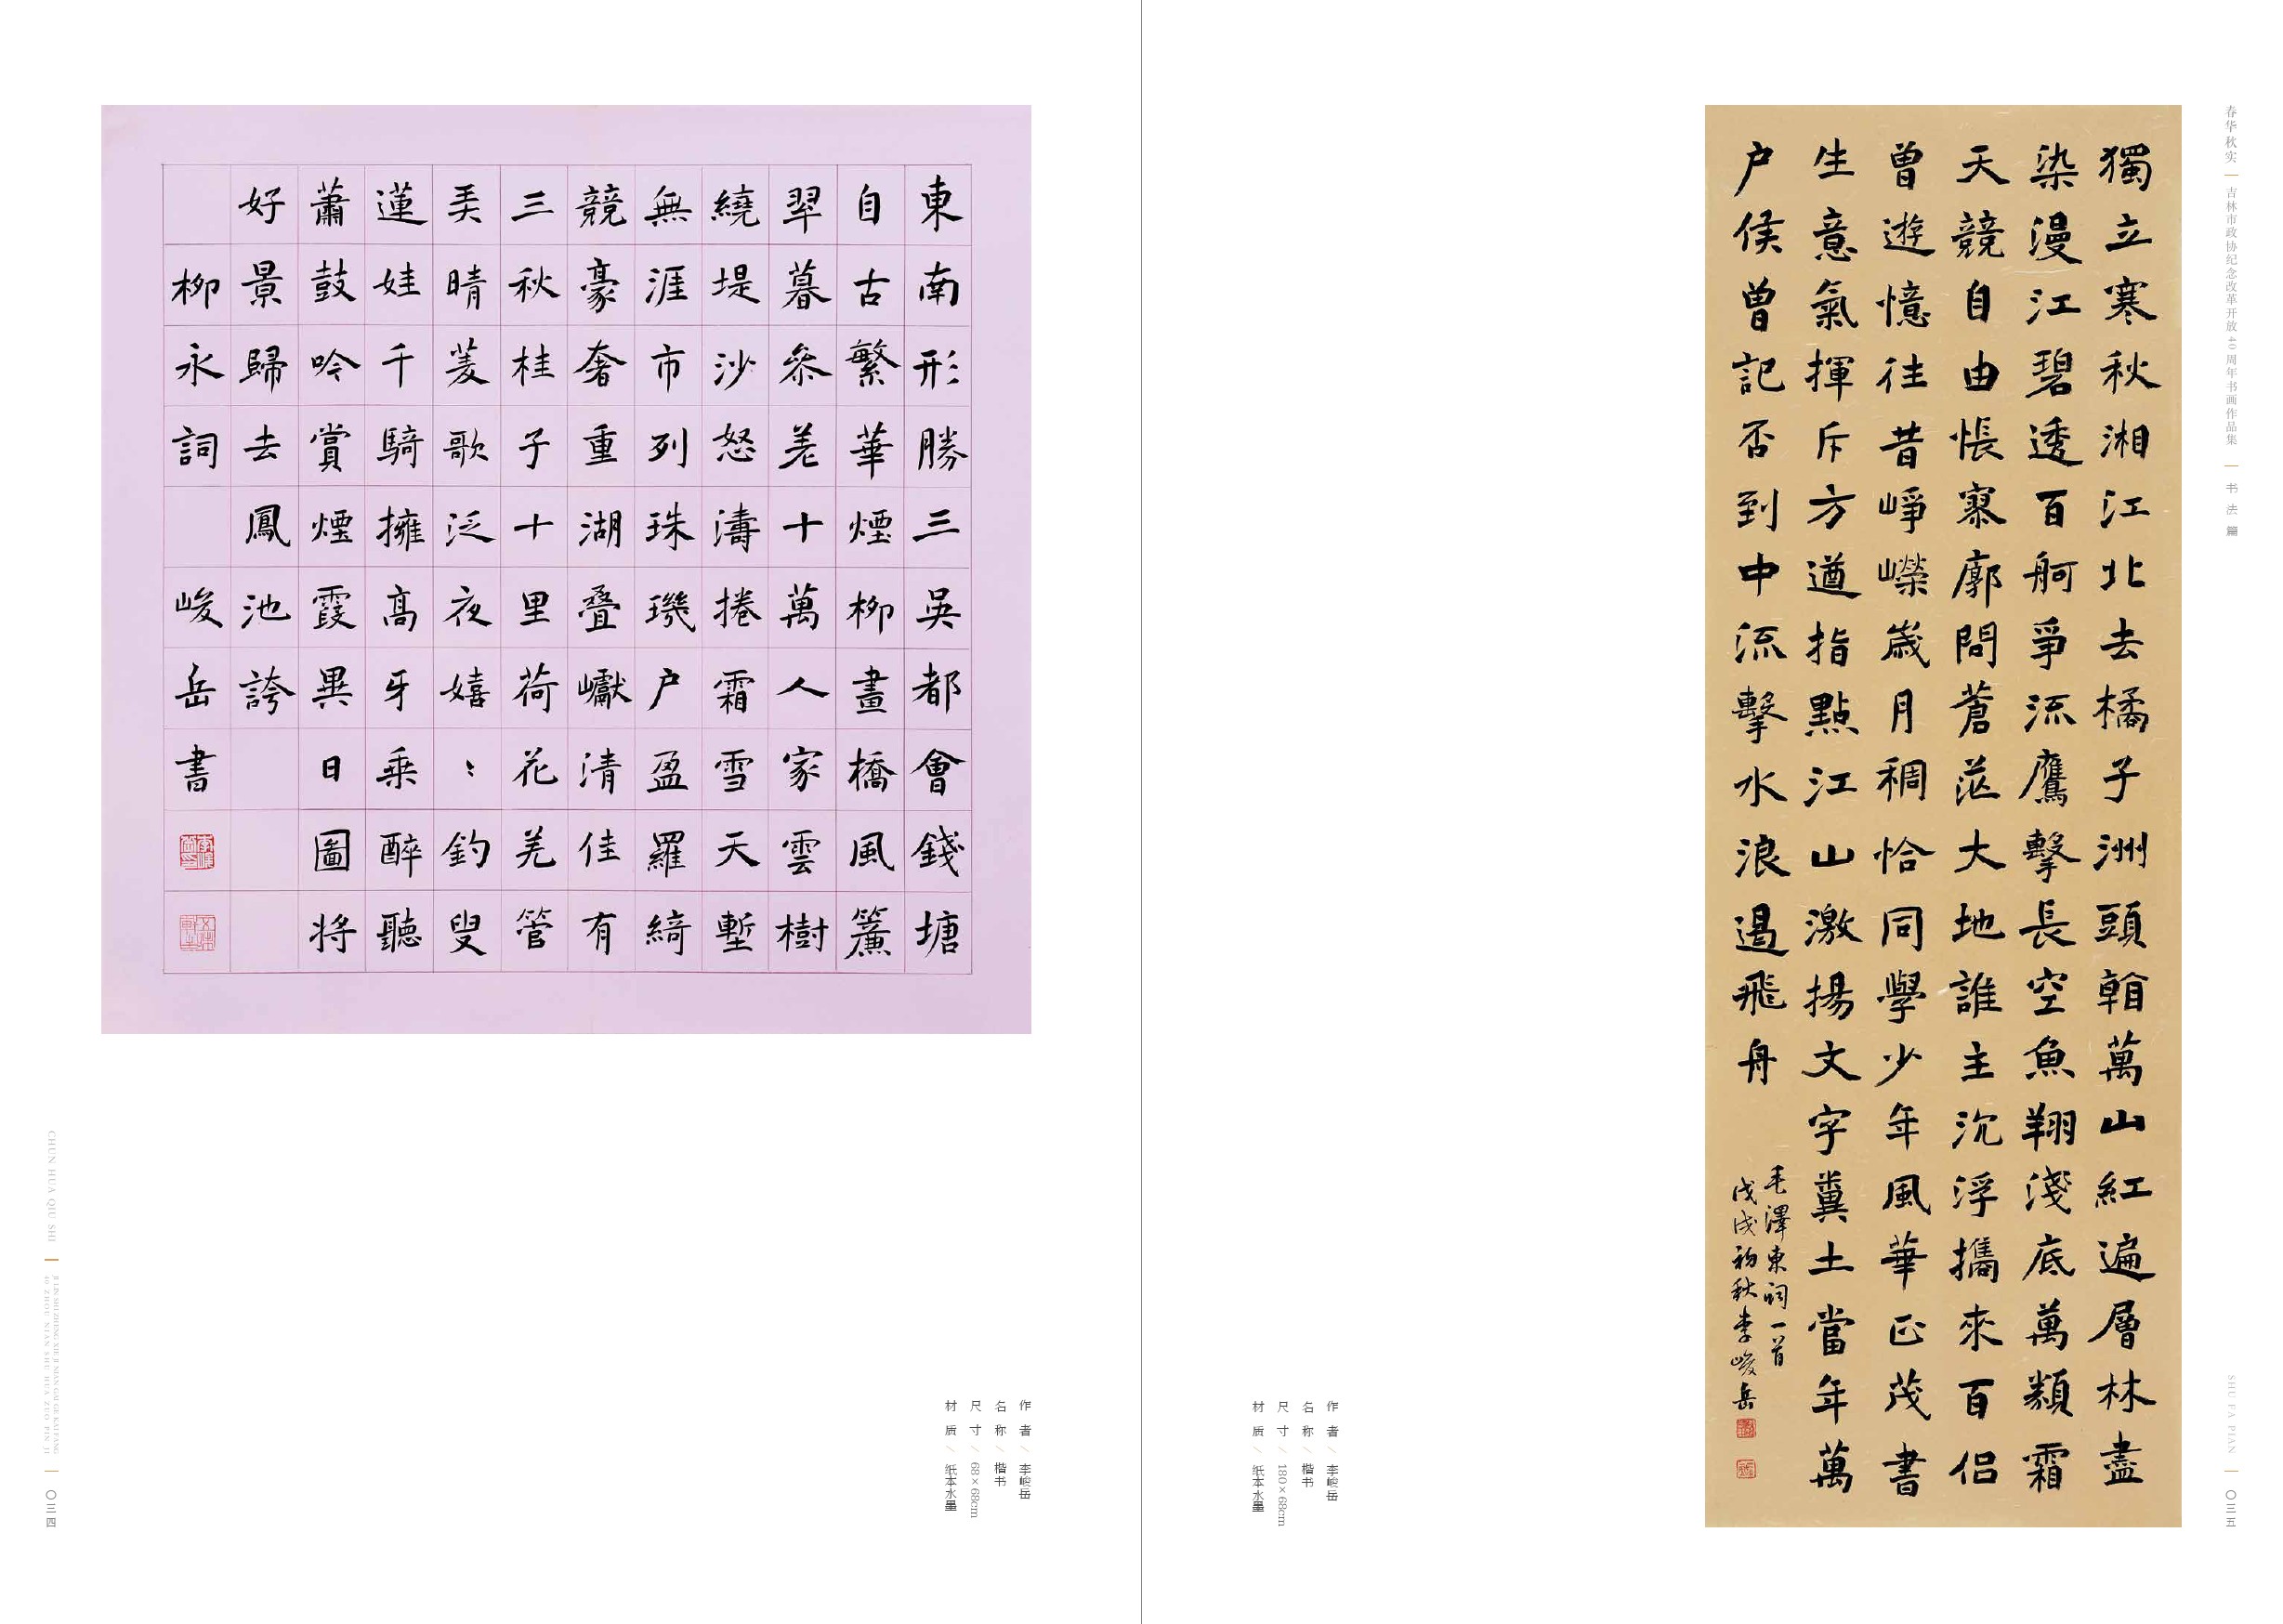 東南形勝三吳都會錢塘
自古繁華煙柳畫橋風簾
翆暮叅差十萬人家雲樹
繞堤沙怒濤捲霜雪天塹
無涯市列珠璣户盈羅綺
競豪奢重湖叠巘清佳有
三秋桂子十里荷花羌管
弄晴菱歌泛夜嬉〻釣叟
蓮娃千騎擁高牙乘醉聽
蕭鼓吟賞煙霞異日圖將
好景歸去鳳池誇
柳永詞 峻岳書
作者／李峻岳
名称／楷书
尺寸／68×68cm
材质／纸本水墨
CHUN HUA QIU SHI
JI LIN SHI ZHENG XIE JI NIAN GAI GE KAI FANG
40 ZHOU NIAN SHU HUA ZUO PIN JI
〇三四
春华秋实
吉林市政协纪念改革开放40周年书画作品集
书法篇
獨立寒秋湘江北去橘子洲頭看萬山紅遍層林盡
染漫江碧透百舸爭流鷹擊長空魚翔淺底萬類霜
天競自由悵寥廓問蒼茫大地誰主沉浮攜來百侶
曾遊憶往昔崢嶸歲月稠恰同學少年風華正茂書
生意氣揮斥方遒指點江山激揚文字糞土當年萬
户侯曾記否到中流擊水浪遏飛舟
毛澤東詞一首
戊戌初秋李峻岳
作者／李峻岳
名称／楷书
尺寸／180×68cm
材质／纸本水墨
SHU FA PIAN
〇三五